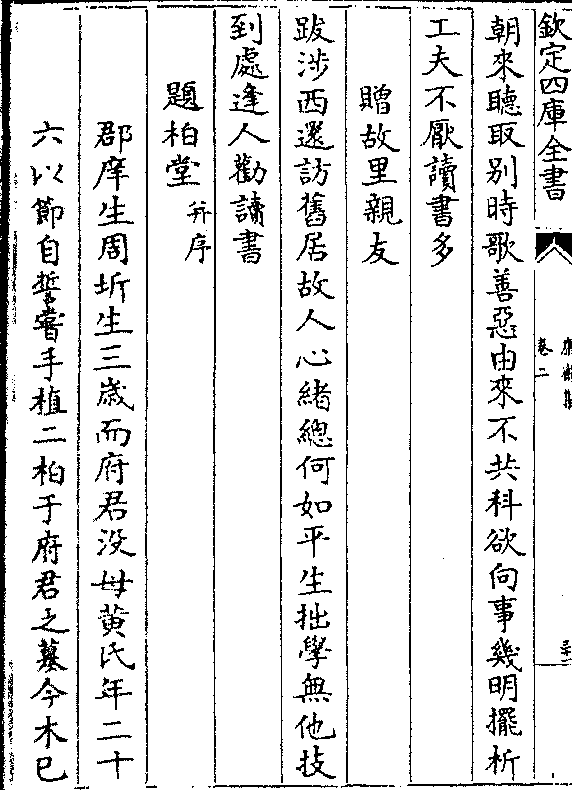 欽定四庫全書
卷二
朝來聽取别時歌善惡由來不共科欲向事幾明擺析
工夫不厭讀書多
贈故里親友
跋涉西還訪舊居故人心緒總何如平生拙學無他技
到處逢人勸讀書
題柏堂并序
郡庠生周圻生三歲而府君没母黄氏年二十
六以節自誓嘗手植二柏于府君之墓今木已